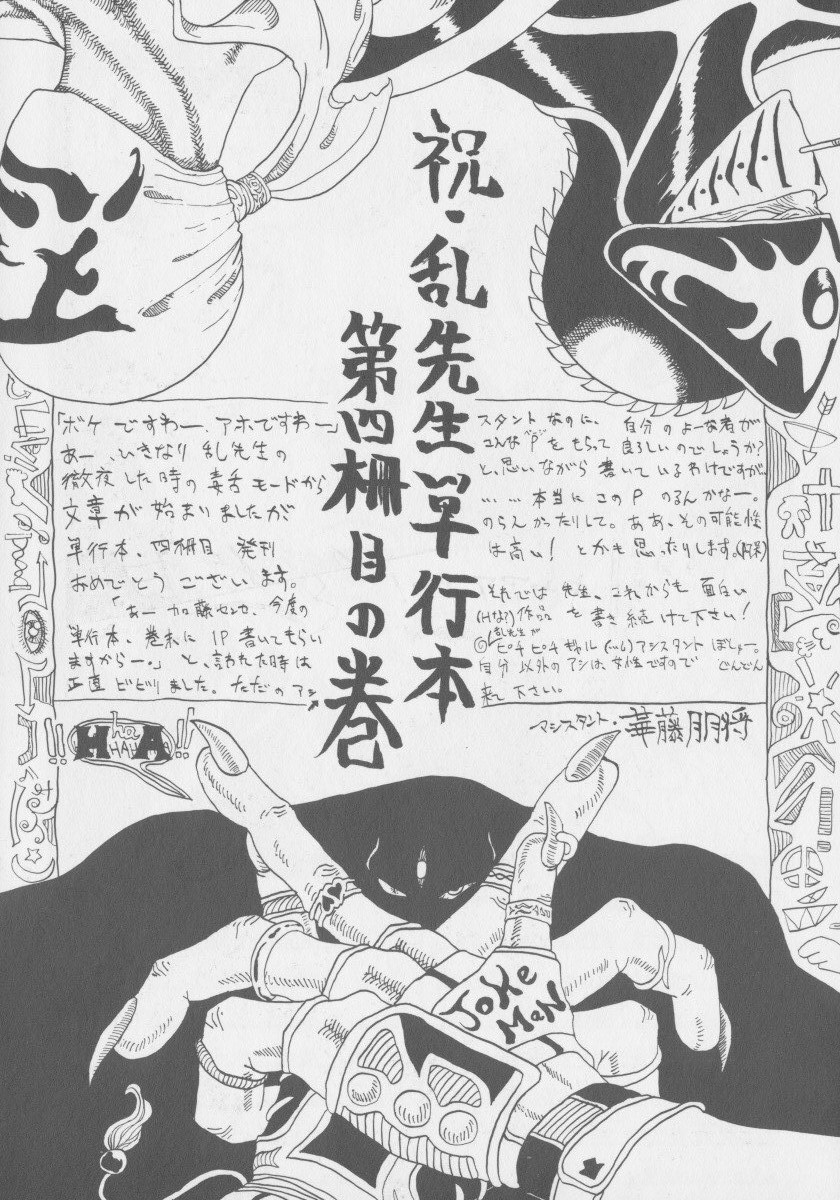 祝・乱先生単行本
第四冊目の巻
「ボケですわー、アホですわー」
あー、いきなり乱先生の
徹夜した時の毒舌モードから
文章が始まりましたが
単行本、四冊目 発刊
おめでとうございます。
「あー加藤センセ、今度の
単行本、巻末に1P書いてもらい
ますからー。」と、言われた時は
正直ビビりました。ただのアシ
スタントなのに、自分のよーな者が
こんな"P"をもらって良ろしいのでしょうか?
と、思いながら書いているわけですが、
……本当にこのPのるんかなー。
のらんかったりして。ああ、その可能性
は高い!とかも思ったりします。
それでは先生、これからも面白い
(Hな?)作品を書き続けて下さい!
◎乱先生がピチピチギャル(いい)アシスタントぼしゅー。
自分以外のアシは、女性ですので じゃんじゃん
来て下さい。
アシスタント・華藤朋将
!! Ha HAHAHA !!
JoKe
MaN